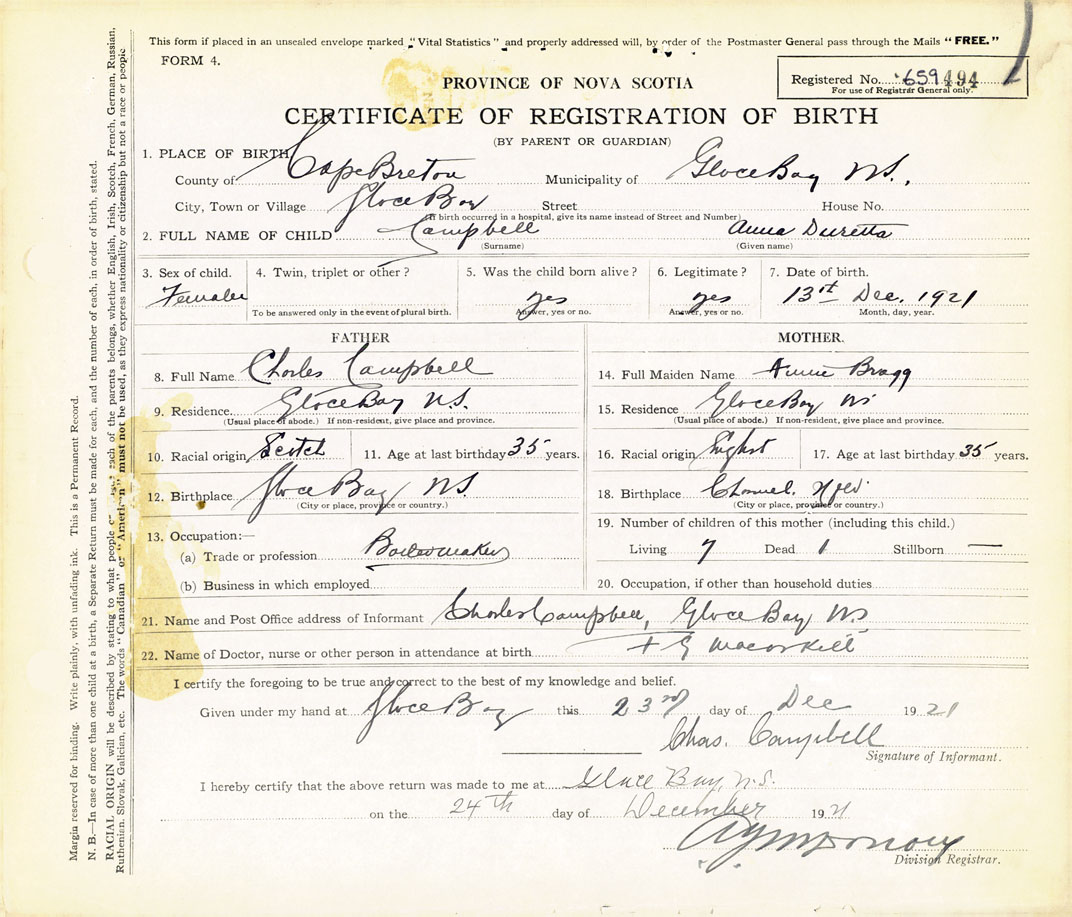 This form if placed in an unsealed envelope marked "Vital Statistics" and properly addressed will, by order of the Postmaster General pass through the Mails "FREE."
FORM 4.
PROVINCE OF NOVA SCOTIA
Registered No. 659 494
For use of Registrar General only.
CERTIFICATE OF REGISTRATION OF BIRTH
(BY PARENT OR GUARDIAN)
1. PLACE OF BIRTH
County of Cape Breton Municipality of Glace Bay N.S.,
City, Town or Village Glace Bay Street House No.
(If birth occurred in a hospital, give its name instead of Street and Number)
2. FULL NAME OF CHILD Campbell Anna
(Surname) (Given name)
3. Sex of child. 4. Twin, triplet or other? 5. Was the child born alive? 6. Legitimate? 7. Date of birth.
Female yes yes 13st Dec. 1921
To be answered only in the event of plural birth. Answer, yes or no. Answer, yes or no. Month, day, year.
FATHER
8. Full Name Charles Campbell
9. Residence Glace Bay N.S.
(Usual place of abode.) If non-resident, give place and province.
10. Racial origin Scotch 11. Age at last birthday 35 years.
12. Birthplace Glace Bay N.S.
(City or place, province or country.)
13. Occupation:—
(a) Trade or profession Boilermaker
(b) Business in which employed
MOTHER.
14. Full Maiden Name Annie Bragg
15. Residence Glace Bay NS
(Usual place of abode.) If non-resident, give place and province.
16. Racial origin 17. Age at last birthday 35 years.
18. Birthplace Channel. Nfld.
(City or place, province or country.)
19. Number of children of this mother (including this child.)
Living 7 Dead 1 Stillborn —
20. Occupation, if other than household duties
21. Name and Post Office address of Informant Charles Campbell, Glace Bay NS
22. Name of Doctor, nurse or other person in attendance at birth
I certify the foregoing to be true and correct to the best of my knowledge and belief.
Given under my hand at Glace Bay this 23rd day of Dec 1921
Chas. Campbell
Signature of Informant.
I hereby certify that the above return was made to me at Glace Bay, N.S.
on the 24th day of December 1921
Division Registrar.
Margin reserved for binding. Write plainly, with unfading ink. This is a Permanent Record.
N. B.—In case of more than one child at a birth, a Separate Return must be made for each, and the number of each, in order of birth, stated.
RACIAL ORIGIN will be described by stating to what people or race each of the parents belongs, whether English, Irish, Scotch, French, German, Russian,
Ruthenian, Slovak, Galician, etc. The words "Canadian" or "American" must not be used, as they express nationality or citizenship but not a race or people